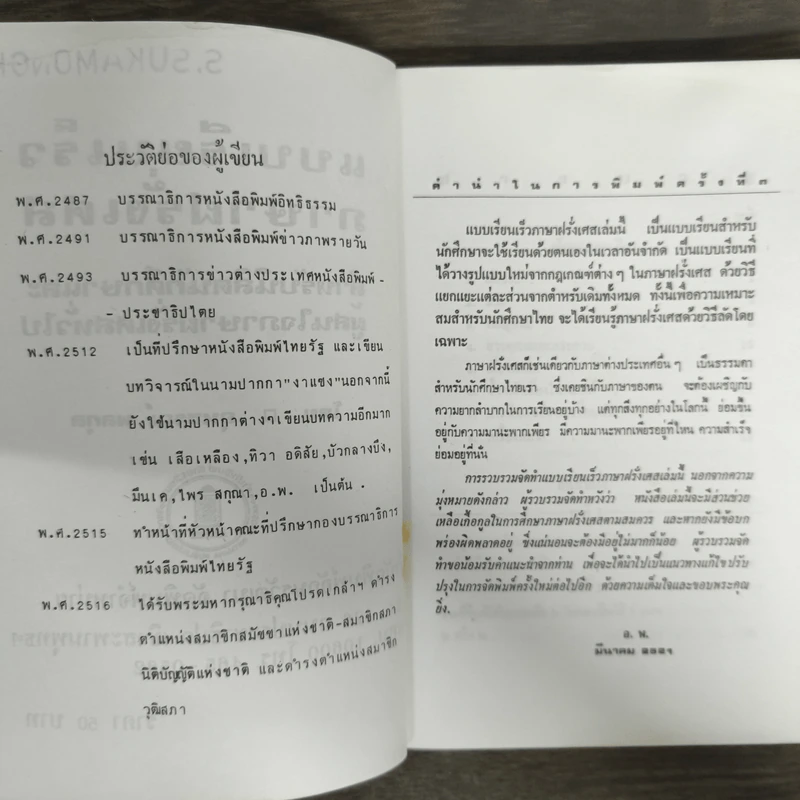 ประวัติย่อของผู้เขียน
พ.ศ.2487 บรรณาธิการหนังสือพิมพ์อิทธิธรรม
พ.ศ.2491 บรรณาธิการหนังสือพิมพ์ข่าวภาพรายวัน
พ.ศ.2493 บรรณาธิการข่าวต่างประเทศหนังสือพิมพ์-
- ประชาธิปไตย
พ.ศ.2512 เป็นที่ปรึกษาหนังสือพิมพ์ไทยรัฐ และเขียน
บทวิจารณ์ในนามปากกา"งาแซง"นอกจากนี้
ยังใช้นามปากกาต่างๆเขียนบทความอีกมาก
เช่น เสือเหลือง,ทิวา อดิสัย,บัวกลางบึง,
มีนเค,ไพร สกุณา,อ.พ. เป็นต้น.
พ.ศ.2515 ทำหน้าที่หัวหน้าคณะที่ปรึกษากองบรรณาธิการ
หนังสือพิมพ์ไทยรัฐ
พ.ศ.2516 ได้รับพระมหากรุณาธิคุณโปรดเกล้าฯ ดำรง
ตำแหน่งสมาชิกสมัชชาแห่งชาติ-สมาชิกสภา
นิติบัญญัติแห่งชาติ และดำรงตำแหน่งสมาชิก
วุฒิสภา
คำนำในการพิมพ์ครั้งที่๓
แบบเรียนเร็วภาษาฝรั่งเศสเล่มนี้ เป็นแบบเรียนสำหรับ
นักศึกษาจะใช้เรียนด้วยตนเองในเวลาอันจำกัด เป็นแบบเรียนที่
ได้วางรูปแบบใหม่จากกฎเกณฑ์ต่าง ๆ ในภาษาฝรั่งเศส ด้วยวิธี
แยกแยะแต่ละส่วนจากตำหรับเดิมทั้งหมด ทั้งนี้เพื่อความเหมาะ
สมสำหรับนักศึกษาไทย จะได้เรียนรู้ภาษาฝรั่งเศสด้วยวิธีลัดโดย
เฉพาะ
ภาษาฝรั่งเศสก็เช่นเดียวกับภาษาต่างประเทศอื่น ๆ เป็นธรรมดา
สำหรับนักศึกษาไทยเรา ซึ่งเคยชินกับภาษาของตน จะต้องเผชิญกับ
ความยากลำบากในการเรียนอยู่บ้าง แต่ทุกสิ่งทุกอย่างในโลกนี้ ย่อมขึ้น
อยู่กับความมานะพากเพียร มีความมานะพากเพียรอยู่ที่ไหน ความสำเร็จ
ย่อมอยู่ที่นั่น
การรวบรวมจัดทำแบบเรียนเร็วภาษาฝรั่งเศสเล่มนี้ นอกจากความ
มุ่งหมายดังกล่าว ผู้รวบรวมจัดทำหวังว่า หนังสือเล่มนี้จะมีส่วนช่วย
เหลือเกื้อกูลในการศึกษาภาษาฝรั่งเศสตามสมควร และหากยังมีข้อบก
พร่องผิดพลาดอยู่ ซึ่งแน่นอนจะต้องมีอยู่ไม่มากก็น้อย ผู้รวบรวมจัด
ทำขอน้อมรับคำแนะนำจากท่าน เพื่อจะได้นำไปเป็นแนวทางแก้ไขปรับ
ปรุงในการจัดพิมพ์ครั้งใหม่ต่อไปอีก ด้วยความเต็มใจและขอบพระคุณ
ยิ่ง.
อ. พ.
มีนาคม ๒๕๒๑